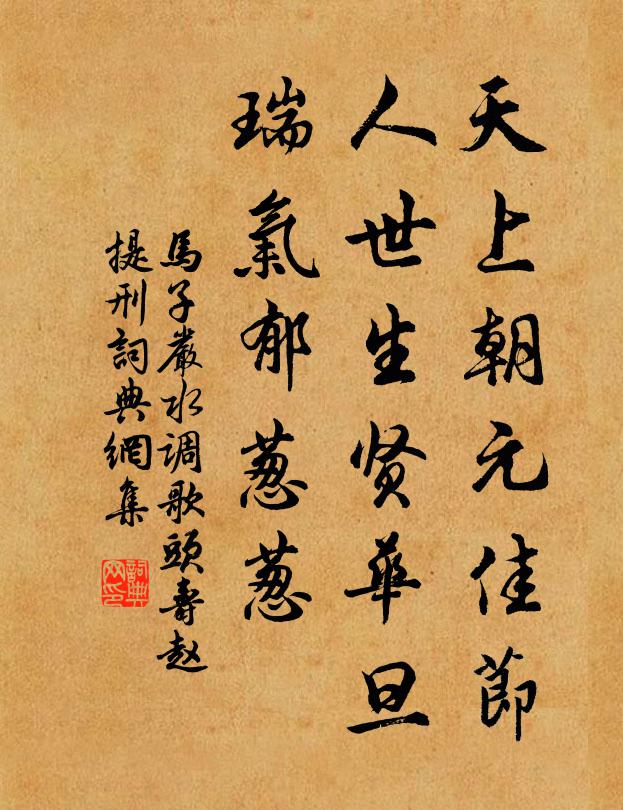 天上朝元佳節
人世生贤華旦
瑞氣郁葱葱
馬子嚴水调歌頭壽赵
提刑詞典網集
詞典
网印